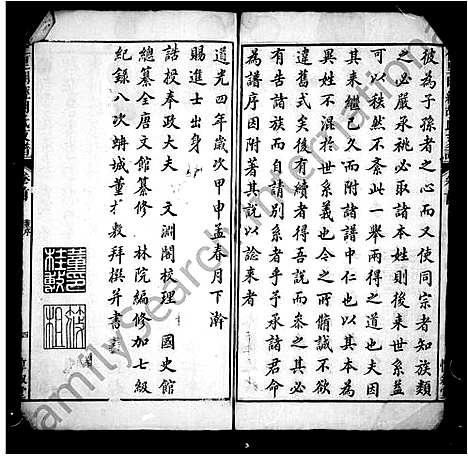 彼為子孫者之心而又使同宗者知族類
之必嚴承祧必取諸本姓則後來世系益
可以秩然不紊此一舉兩得之道也夫因
其來繼已久而附諸譜中仁也以其本為
異姓不混於世系義也今之所脩誠不欲
違舊式矣後有續者得吾說而參之其必
有告諸族而自請別系者乎予承諸君命
為譜序因附著其說以諗來者
道光四年歲次甲申孟春月下澣
賜進士出身
誥授奉政大夫 文淵閣校理 國史館
總纂全唐文館纂修 林院編修加七級
紀錄八次婺城董桂敷拜撰并書
董印
桂敷
筱槎
四
FamilySearch International